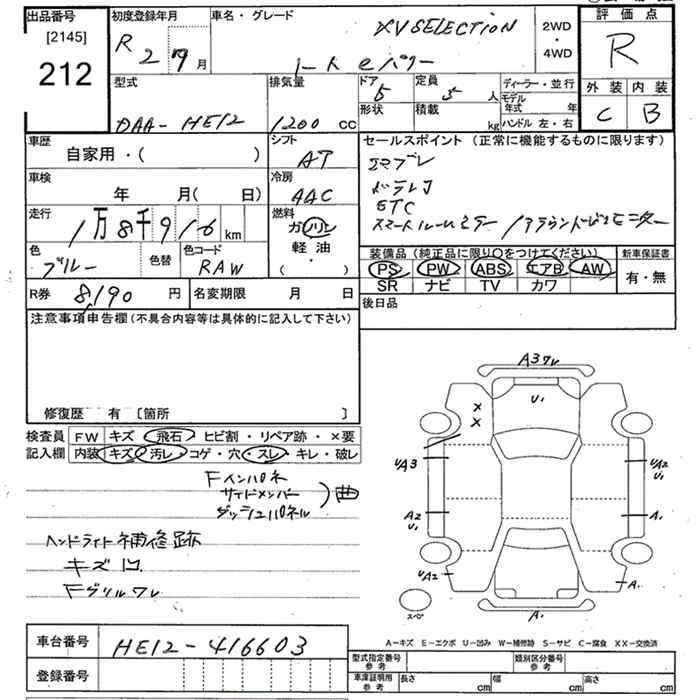 出品番号
[2145]
212
初度登録年月
R 2 年 9 月
車名・グレード
XV SELECTION
ノート eパワー
2WD
・
4WD
評価点
R
外装 内装
C B
型式
DAA-HE12
排気量
1200 CC
ドア
5
定員
5 人
ディーラー・並行
形状
積載
kg
モデル年式 年
ハンドル 左・右
車歴
自家用・( )
シフト
AT
車検
年 月( 日)
冷房
AAC
走行
1万8千916 km
燃料
ガソリン
軽油・
( )
色
ブルー
色替
色コード
RAW
R券 8,190 円
名変期限 月 日
セールスポイント (正常に機能するものに限ります)
エマブレ
ドラレコ
ETC
スマートルームミラー / アラウンドビューモニター
装備品 (純正品に限り○をつけてください)
PS PW ABS エアB AW
SR ナビ TV カワ
新車保証書
有・無
後日品
注意事項申告欄 (不具合内容等は具体的に記入して下さい)
修復歴 有 [箇所 ]
検査員
記入欄
FW キズ 飛石 ヒビ割・リペア跡・×要
内装 キズ 汚レ コゲ・穴・スレ・キレ・破レ
Fインパネ
サイドメンバー
ダッシュパネル
)曲
ヘッドライト補修跡
キズ凹
Fグリルワレ
A3ワレ
U1
X
X
UA3
A2
U1
UA2
UA2
U1
A1
A1
A1
スペア
A-キズ E-エクボ U-凹み W-補修跡 S-サビ C-腐食 XX-交換済
車台番号 HE12-416603
登録番号
型式指定番号
参考
類別区分番号
参考
車庫証明用
参考
長さ cm
幅 cm
高さ cm